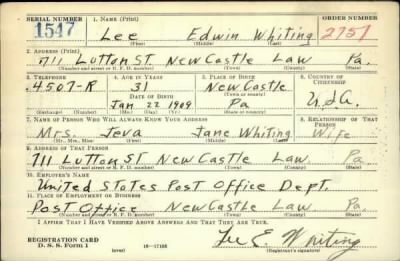 SERIAL NUMBER 1. NAME (Print) ORDER NUMBER
1547 Lee Edwin Whiting 2751
(First) (Middle) (Last)
2. ADDRESS (Print)
711 Lutton St New Castle Law Pa.
(Number and street or R. F. D. number) (Town) (County) (State)
3. TELEPHONE 4. AGE IN YEARS 5. PLACE OF BIRTH 6. COUNTRY OF CITIZENSHIP
4507-R 31 New Castle
DATE OF BIRTH (Town or county)
Jan 22 1909 Pa U.S.A.
7. NAME OF PERSON WHO WILL ALWAYS KNOW YOUR ADDRESS 8. RELATIONSHIP OF THAT PERSON
Mrs. Jeva Jane Whiting Wife
(Mr., Mrs., Miss) (First) (Middle) (Last)
9. ADDRESS OF THAT PERSON
711 Lutton St New Castle Law Pa
(Number and street or R. F. D. number) (Town) (County) (State)
10. EMPLOYER'S NAME
United States Post Office Dept.
11. PLACE OF EMPLOYMENT OR BUSINESS
Post Office New Castle Law. Pa.
(Number and street or R. F. D. number) (Town) (County) (State)
I AFFIRM THAT I HAVE VERIFIED ABOVE ANSWERS AND THAT THEY ARE TRUE.
Lee E. Whiting
REGISTRATION CARD
D. S. S. Form 1 (over) 16-17105 (Registrant's signature)